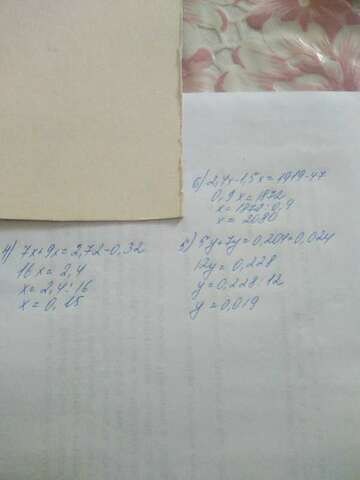 б) 2,4x-1,5x=1919-47
0,9x=1872
x=1872:0,9
x=2080
4) 7x+9x=2,72-0,32
16x=2,4
x=2,4:16
x=0,15
5y+7y=0,204+0,024
12y=0,228
y=0,228:12
y=0,019